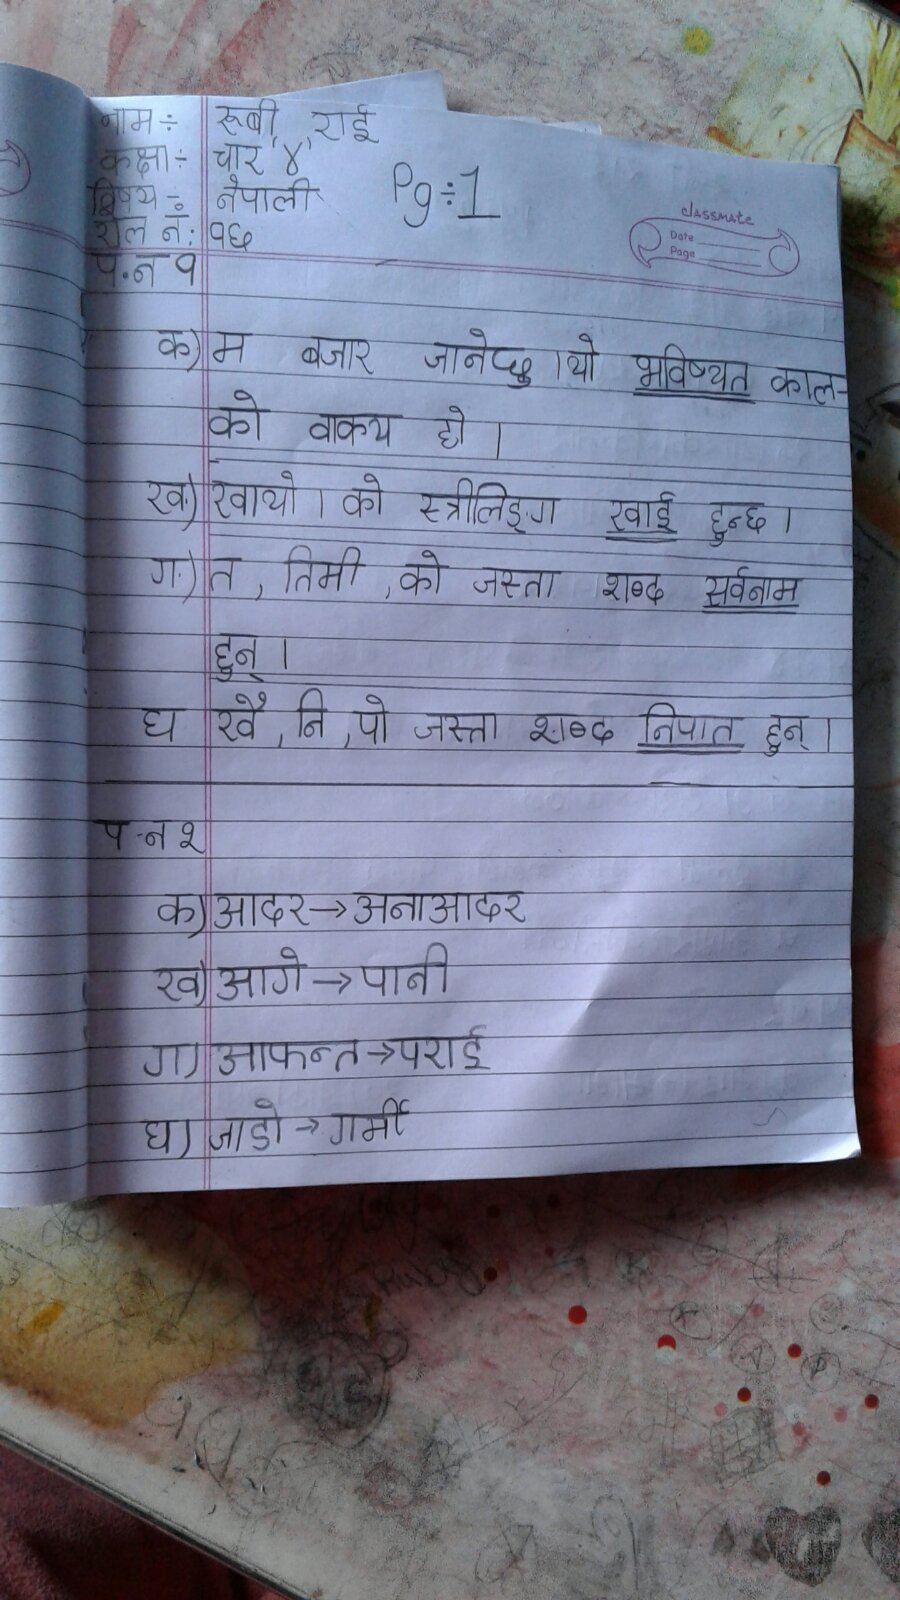 नाम÷ रूबी, राई
कक्षा÷ चार ४
विषय÷ नेपाली
रोल नं: १६
Pg÷1
classmate
Date
Page
प.न १
क) म बजार जानेछु । यो भविष्यत काल-
को वाक्य हो ।
ख) खायो । को स्त्रीलिङ्ग खाई हुन्छ ।
ग) त , तिमी , को जस्ता शब्द सर्वनाम
हुन् ।
घ खै , नि , पो जस्ता शब्द निपात हुन् ।
प.न २
क) आदर → अनाआदर
ख) आगो → पानी
ग) आफन्त → पराई
घ) जाडो → गर्मी